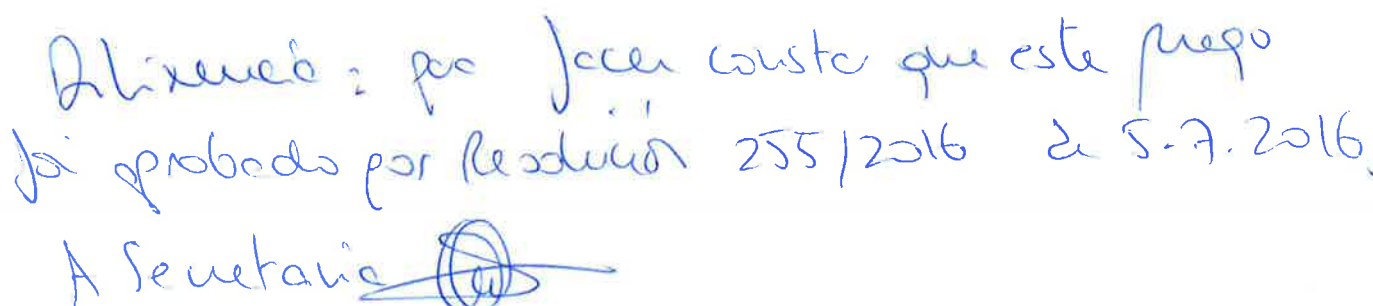 Dilixencia: para facer constar que este prego
foi aprobado por Resolución 255/2016 de 5.7.2016.
A Secretaria